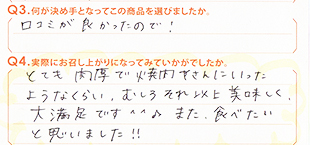 Q3.何が決め手となってこの商品を選びましたか。
口コミが良かったので！
Q4.実際にお召し上がりになってみていかがでしたか。
とても肉厚で焼肉やさんにいった
ようなくらい、むしろそれ以上美味しく、
大満足です^^♪また、食べたい
と思いました!!